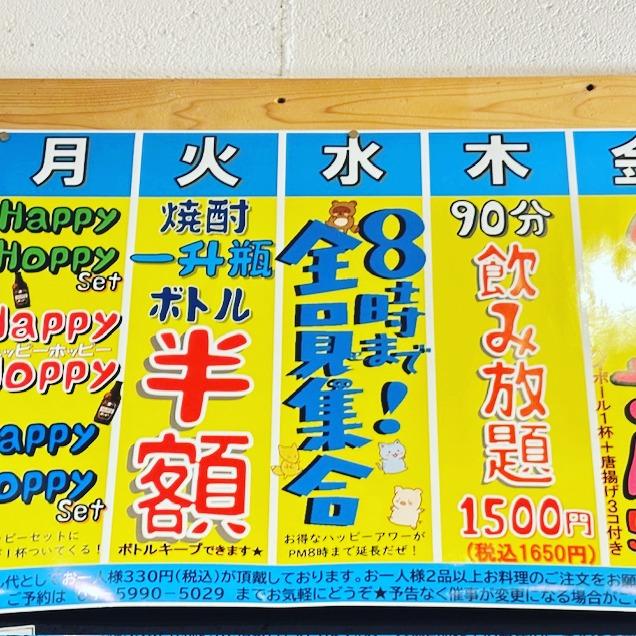 月
Happy
Hoppy
Set
Happy
ッピーホッピー
Hoppy
Happy
Hoppy
Set
ッピーセットに
1杯ついてくる!
火
焼酎
一升瓶
ボトル
半額
ボトルキープできます★
水
8時まで!
全員集合
お得なハッピーアワーが
PM8時まで延長だぜ!
木
90分
飲み放題
1500円
(税込1650円)
金
ボール1杯+唐揚げ3コ付き
し代としてお一人様330円(税込)が頂戴しております。お一人様2品以上お料理のご注文をお願
ご予約は 5990-5029 までお気軽にどうぞ★予告なく催事が変更になる場合がご